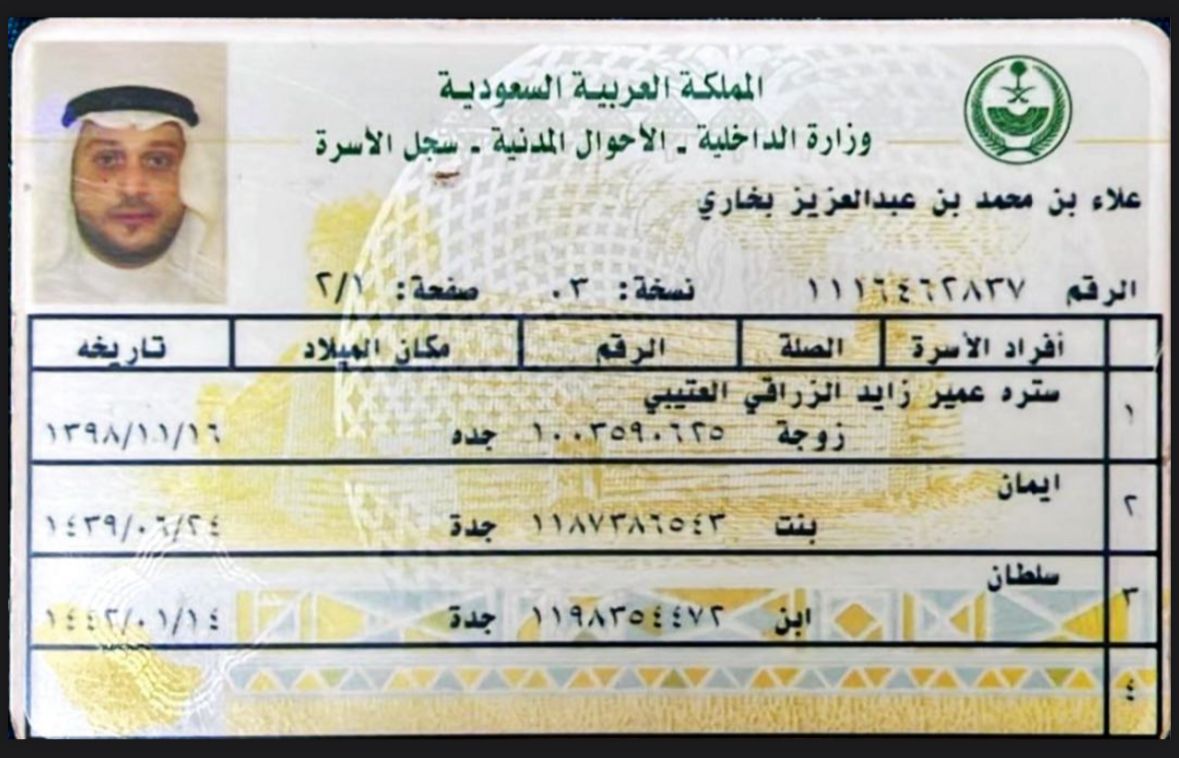 المملكة العربية السعودية
وزارة الداخلية ـ الأحوال المدنية ـ سجل الأسرة
علاء بن محمد بن عبدالعزيز بخاري
الرقم ١١١٦٤٦٢٨٣٧ نسخة: ٠٣ صفحة: ٢/١
أفراد الأسرة الصلة الرقم مكان الميلاد تاريخه
١ ستره عمير زايد الزراقي العتيبي
زوجة ١٠٠٣٥٩٠٦٢٥ جده ١٣٩٨/١١/١٦
٢ ايمان
بنت ١١٨٧٣٨٦٥٤٣ جدة ١٤٣٩/٠٦/٢٤
٣ سلطان
ابن ١١٩٨٣٥٤٤٧٢ جدة ١٤٤٢/٠١/١٤
٤